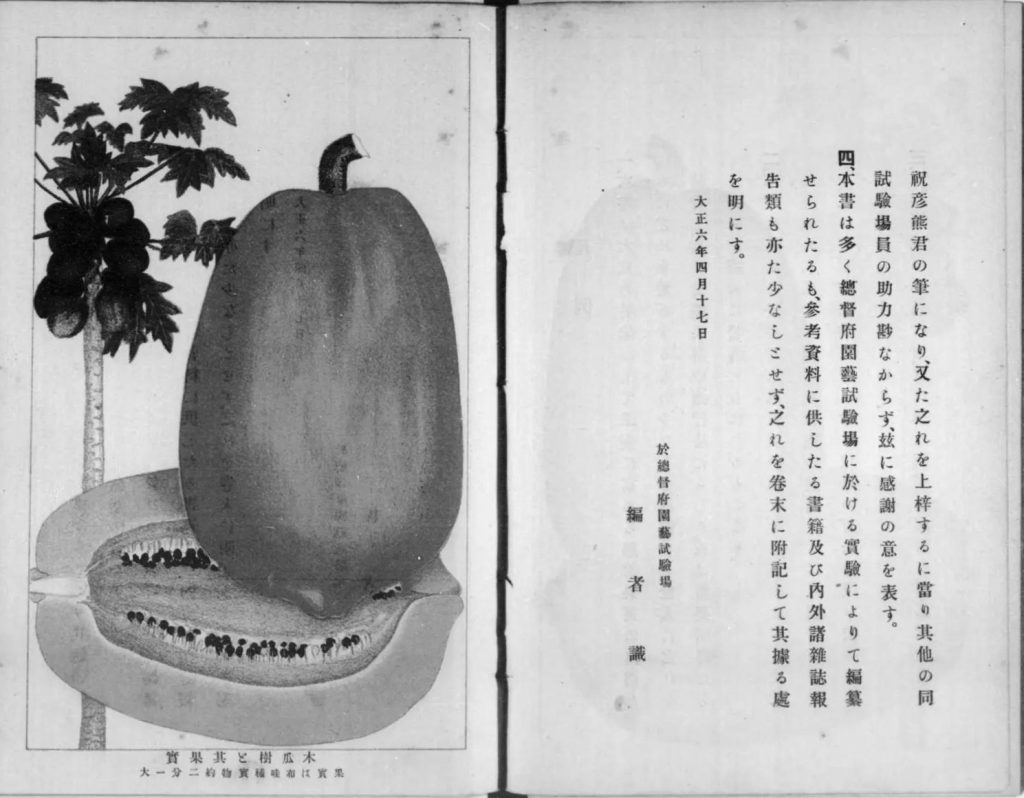 祝彦熊君の筆になり、又た之れを上梓するに當り其他の同
試驗場員の助力尠なからず、玆に感謝の意を表す。
四、本書は多く總督府園藝試驗場に於ける實驗によりて編纂
せられたるも、參考資料に供したる書籍及び內外諸雜誌報
告類も亦た少なしとせず、之れを卷末に附記して其據る處
を明にす。
大正六年四月十七日
於總督府園藝試驗場
編者識
木瓜樹と其果實
果實は布哇種實物約二分一大